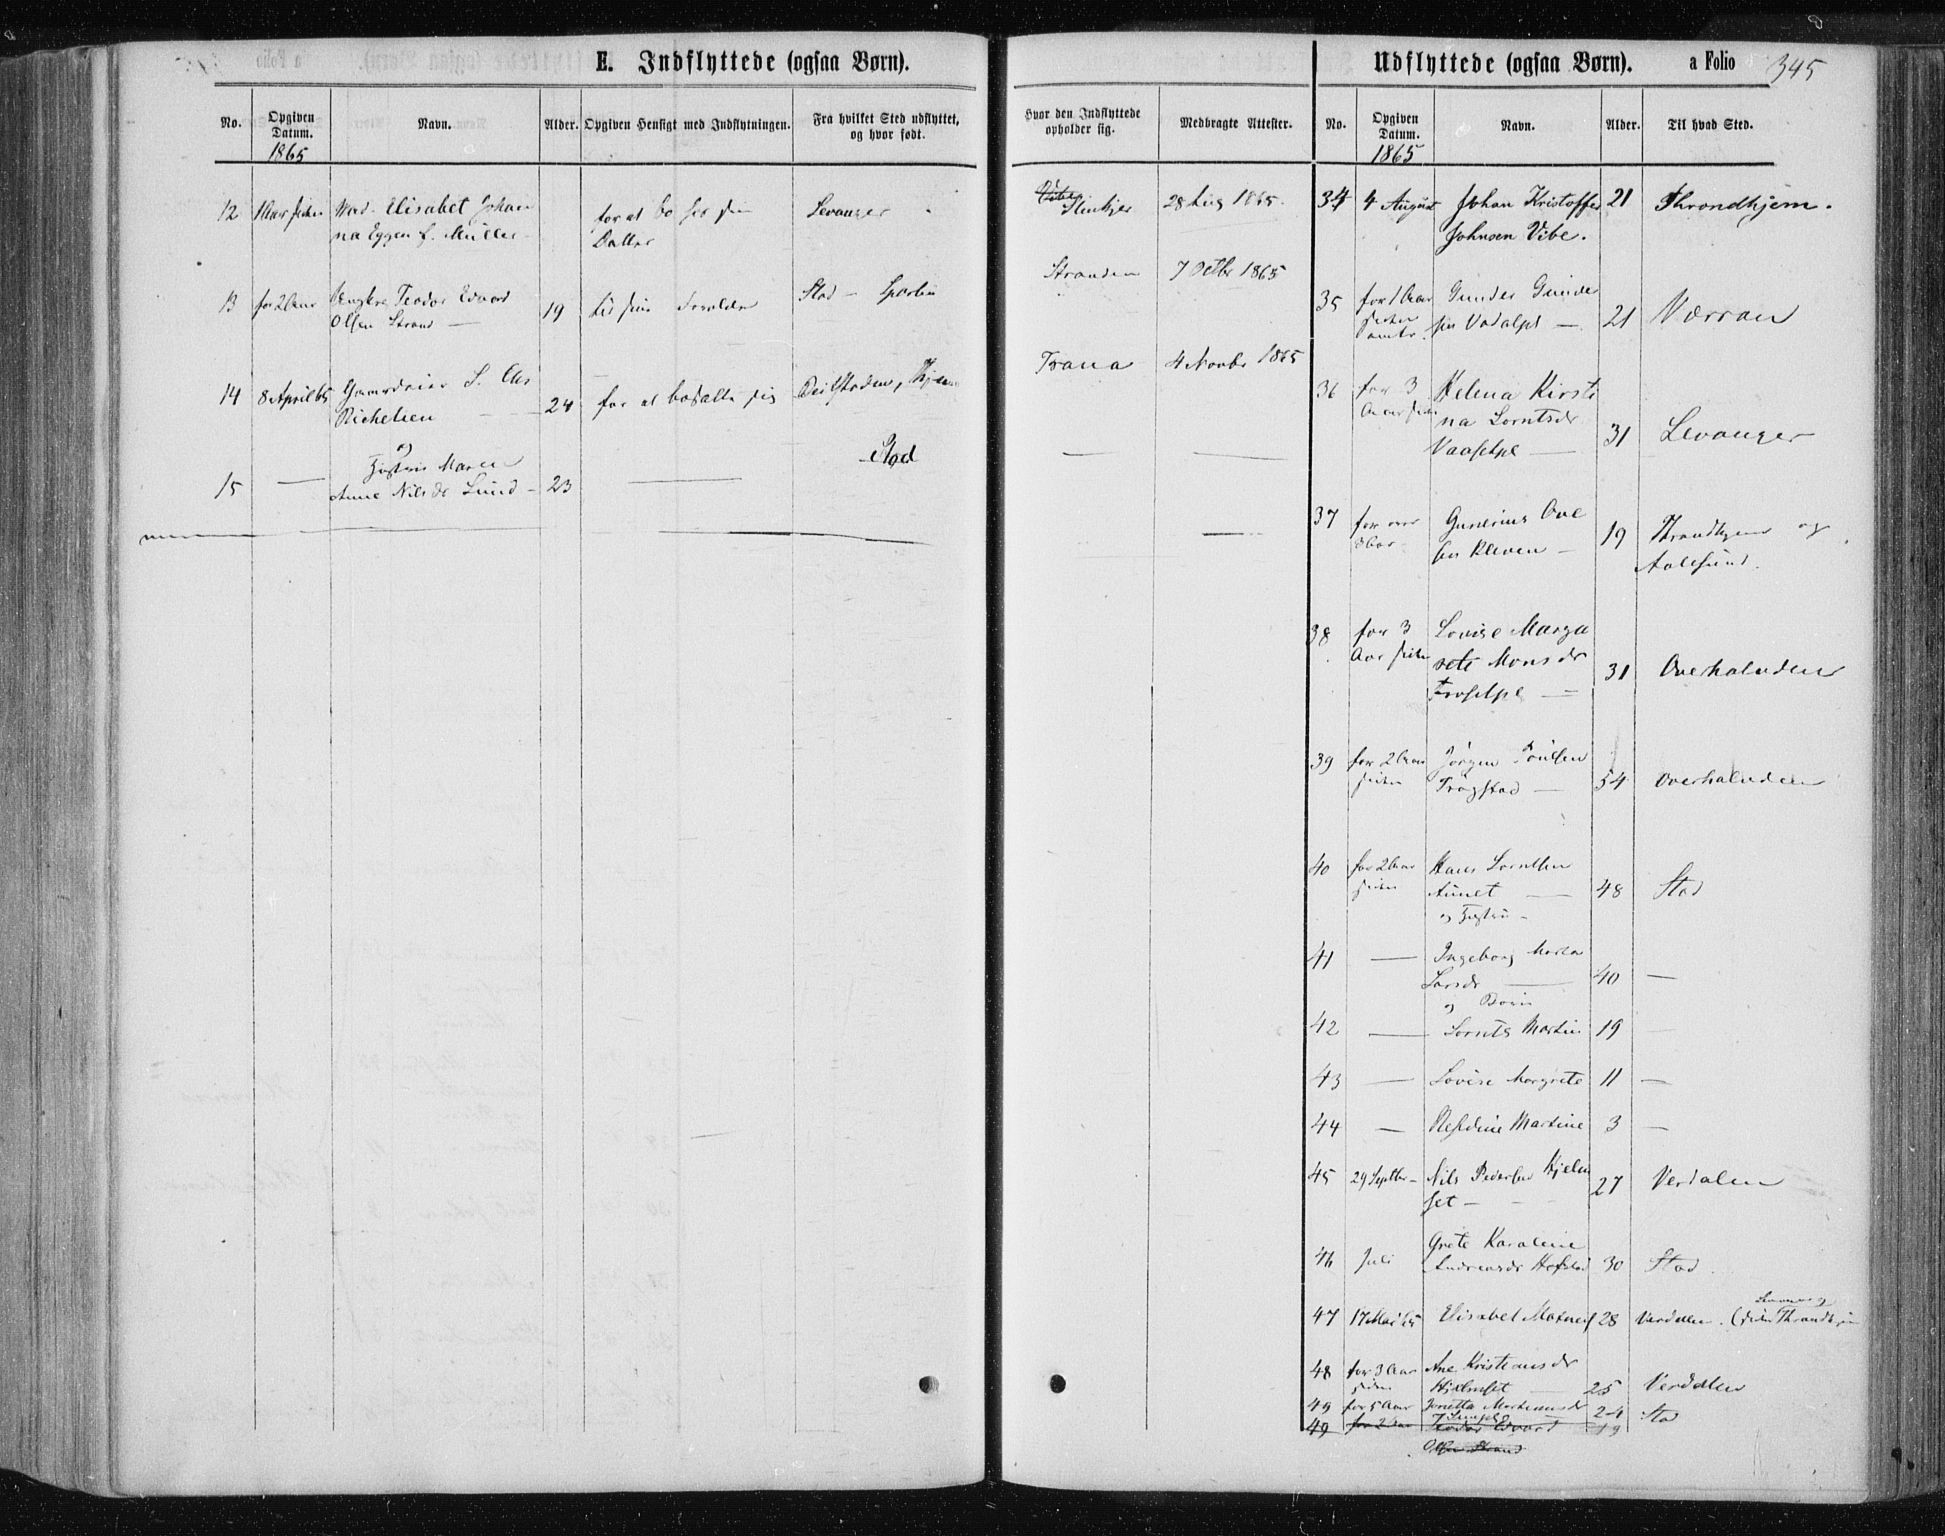 E. Indflyttede (ogsaa Børn).
No.
Opgiven Datum.
1865
Navn.
Alder.
Opgiven Hensigt med Indflytningen.
Fra hvilket Sted udflyttet,
og hvor født.
12
Elisabet Johan
na Eggen f. Müller
for at bo hos sin
Datter
Levanger
13
for 2 Aar
Teodor Edvard
Olsen Strand
19
til sine Forældre
Stod - Sparbu
14
8 April 65
24
for at bosætte sig
og
Hustru Maren
Stod
15
Anne Nilsdr Lund
23
Hvor den Indflyttede
opholder sig.
Medbragte Attester.
Vibe
Stenkjer
28 Aug 1865.
Stranden
7 Octbr 1865
Trana
4 Novbr 1865
Udflyttede (ogsaa Børn).
a Folio
345
No.
Opgiven Datum.
1865
Navn.
Alder.
Til hvad Sted.
34
4 August
Johan Kristoffer
21
Throndhjem.
Johnsen Vibe.
35
for 1 Aar
siden
Gunder Gunder
sen
21
Værran
36
for 3
Aar siden
Helena Kirsti
na Lorntsdr
31
Levanger
37
Gunerius Ole
sen Kleven
19
Throndhjem og
Aalesund.
38
for 3
Aar siden
Lovise Marga
rete Monsdr
31
Overhalvden
39
for 2 Aar
siden
Jörgen Poulsen
Trögstad
54
Overhalvden
40
for 2 Aar
siden
Hans Lorntsen
Aunet
48
Stod
og Hustru
41
Ingeborg Marta
Larsdr
40
og Börn
42
Lornts Martin
19
43
Lovise Margrete
11
44
Martine
3
45
29 Septbr
Nils Pedersen Hjelm
set
27
Verdalen
46
Juli
Grete Karoline
Andreasdr Hofstad
30
Stod
47
17 Mai 65
Elisabet
28
Verdalen. (siden Throndhjem
48
for 3 Aar
siden
Ane Kristiansdr
Hjelmset
25
Verdalen
49
for 5 Aar
Jonetta Martinusdr
24
Stod
49
for 2 Aar
Teodor Edvard
19
Olsen Strand